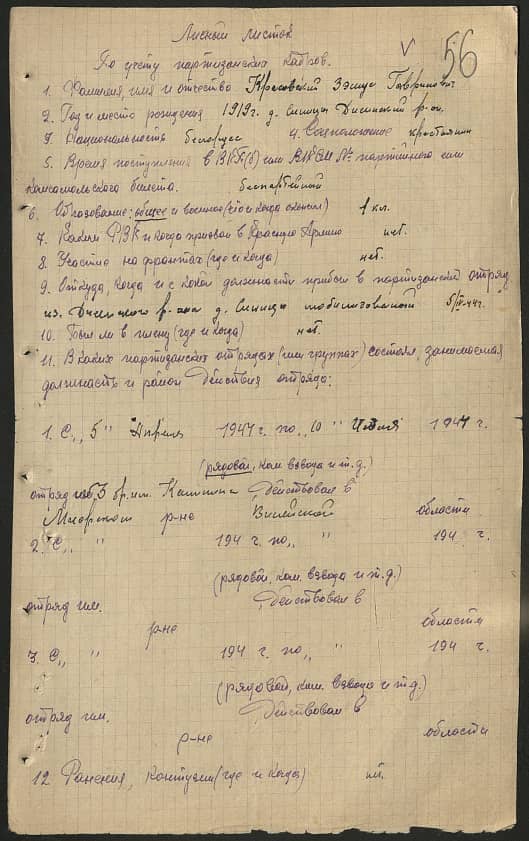 Личный листок
По учету партизанских кадров. V 56
1. Фамилия, имя и отчество Красовский Гаврилович
2. Год и место рождения 1919 г. д. Синицы Дисненский р-он.
3. Национальность белорус 4. Соцположение крестьянин
5. Время поступления в ВКП(б) или ВЛКСМ № партийного или
комсомольского билета. беспартейный
6. Образование: общее и военное (что и когда окончил) 1 кл.
7. Каким РВК и когда призван в Красную Армию нет.
8. Участие на фронтах (где и когда) нет.
9. Откуда, когда и с какой должности прибыл в партизанский отряд
из Дисненского р-на д. Синицы мобилизованный 5/IV-44 г.
10. Был ли в плену (где и когда) нет.
11. В каких партизанских отрядах (или группах) состоял, занимаемая
должность и район действия отряда:
1. С „5" Апрель 1944 г. по „10" Июля 1944 г.
(рядовой, ком. взвода и т.д.)
отряд 3 бр. им. Калинина Действовал в
Миорском р-не Вилейской области
2. С „ " 194 г. по „ " 194 г.
(рядовой, ком. взвода и т.д.)
отряд им. Действовал в
р-не области
3. С „ " 194 г. по „ " 194 г.
(рядовой, ком. взвода и т.д.)
отряд им. Действовал в
р-не области
12. Ранения, контузии (где и когда) нет.